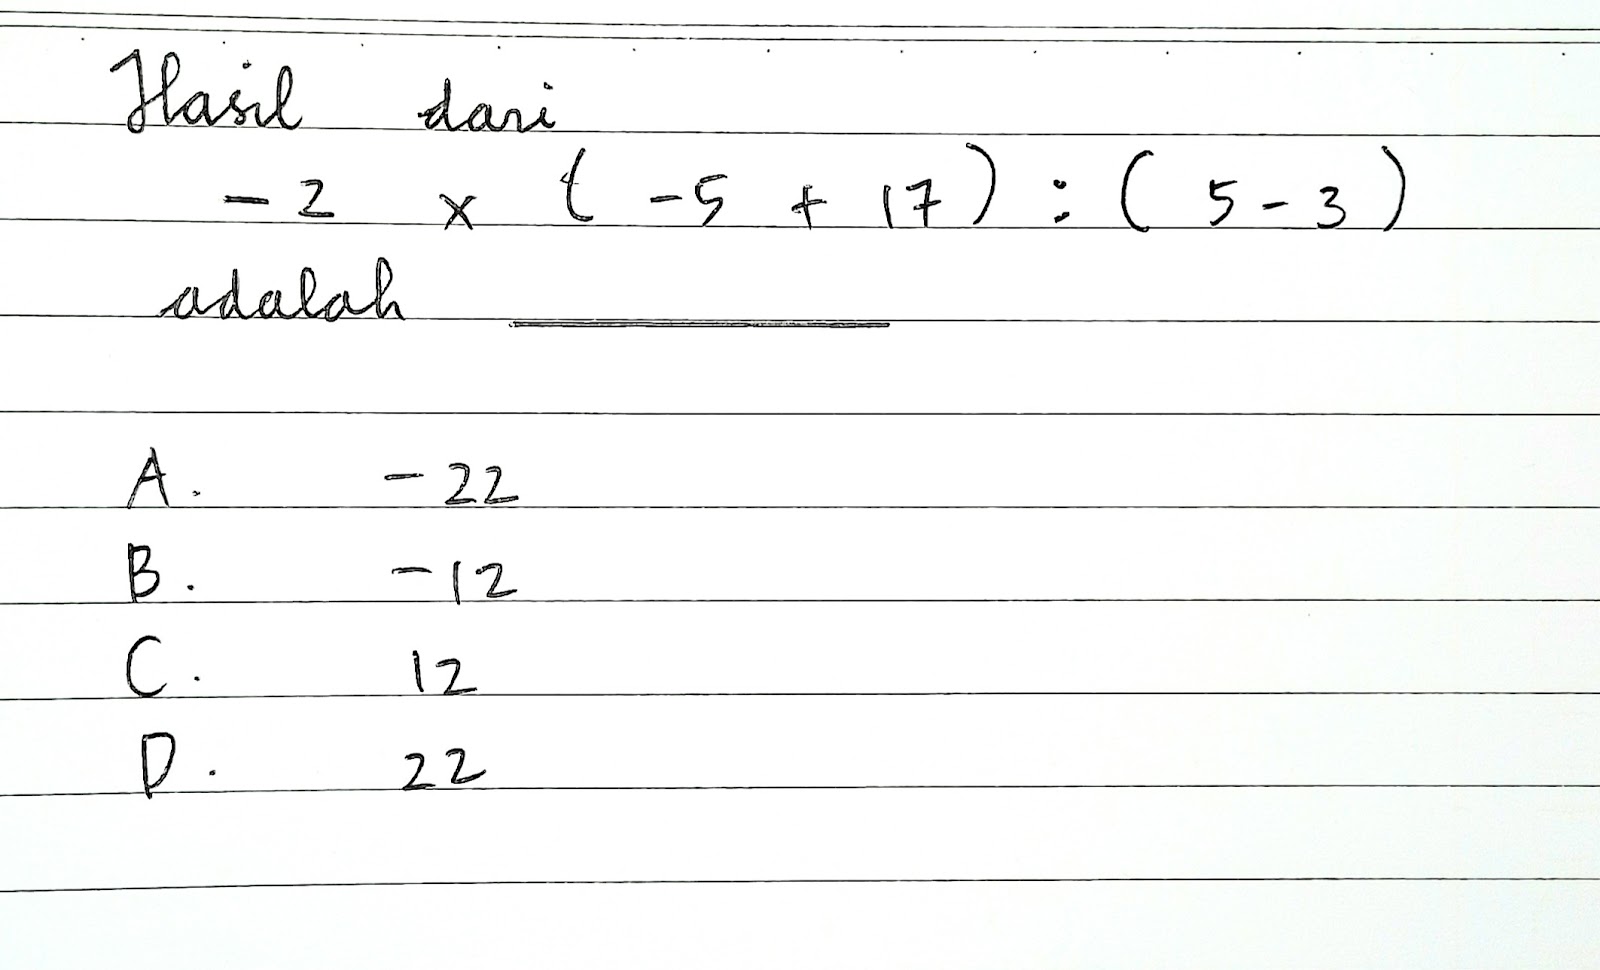 Hasil dari
-2 x (-5 + 17) : (5-3)
adalah ________
A. -22
B. -12
C. 12
D. 22